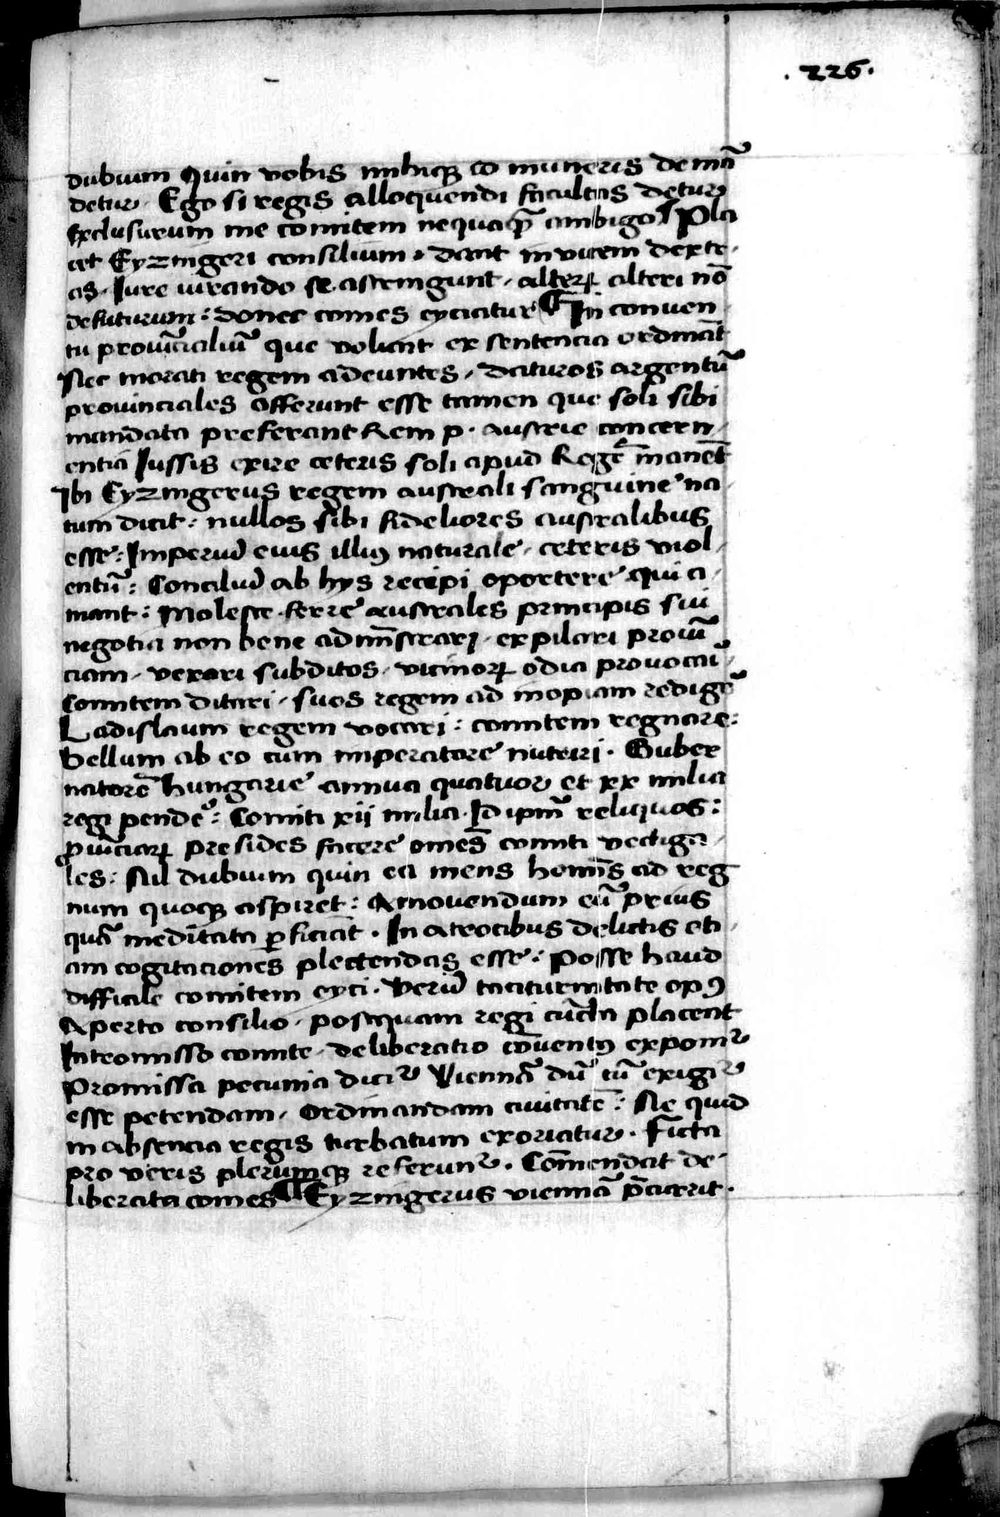 .226.
dubium Quin vobis mihiqꝫ id muneris demā
detur. Ego si regis alloquendi facultas detur
Exclusurum me comitem nequaq̄ ambigo ¶ Pla
cet Eyzingeri consilium, dant invicem dexte,
as. Iure iurando se astringunt. alterꝝ alteri nō
defuturum: donec comes eyciatur ¶ In conven,
tu prouīcialiū que volunt ex sentencia ordināt
Nec morati regem adeuntes, daturos argentū
prouinciales afferunt esse tamen que soli sibi
mandata preferant Rem p. austrie concern,
entia Iussis exire ceteris soli apud Regē manēt
Ibi Eyzingerus regem australi sanguine na,
tum dicit: nullos sibi fideliores australibus
esse: Imperiū eius illis naturale, ceteris viol,
entū: Conciliū ab hys recipi oportere qui a,
mant: Moleste ferre australes principis sui
negotia non bene admīstrari, expilari prouī
ciam, vexari subditos, vicinorꝝ odia prouocai,
Comitem ditari, suos regem ad inopiam redigē
Ladislaum regem vocari: comitem regnare:
Bellum ab eo cum imperatore nutriri. Guber
natorē hungarie annua quatuor et xx milia
regi pende: Comiti xij milia. Id ipm̄ reliquos:
ꝓuīciarꝝ presides facere omēs comiti vectiga,
les: Nil dubium quin ea mens homīs ad reg
num quoqꝫ aspiret: Amovendum eū prius
quā meditata ꝑficiat. In atrocibus delictis eti,
am cogitaciones plectendas esse: Posse haud
difficile comitem eyci. Verū taciturnitate opꝰ
Aperto consilio. postquam regi cūcta placent
Intromisso comite. deliberatio cōventꝰ exponiꝰ
Promissa pecunia diciꝰ Viennā dū cū exigiꝰ
esse petendam, Ordinandam civitatē: Ne quid
in absencia regis turbatum exoriatur. Ficta
pro veris plerumqꝫ referunꝰ. Cōmendat de,
liberata comes ¶ Eyzingerus viennā p̄cucrrit.